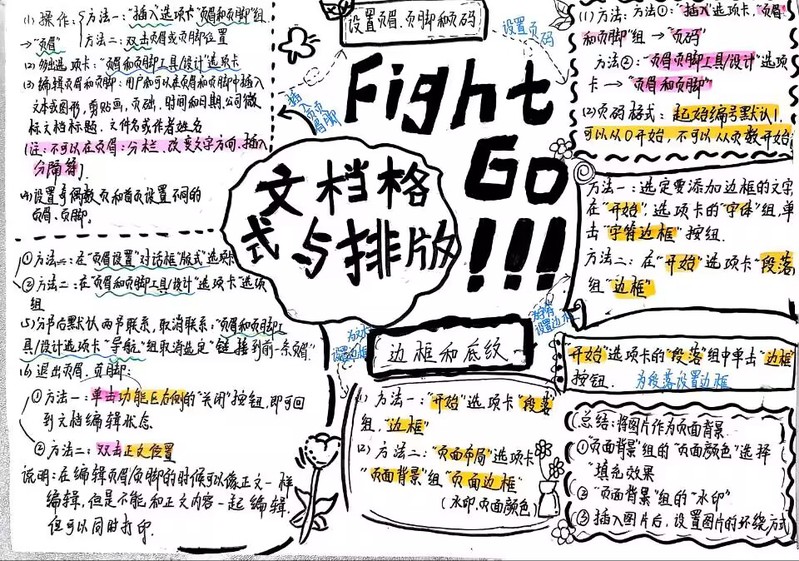 (1) 操作: 方法一:"插入"选项卡"页眉和页脚"组
→"页眉"
方法二:双击页眉或页脚位置
(2) 弹出选项卡:"页眉和页脚工具/设计"选项卡
(3) 编辑页眉和页脚:用户可以在页眉和页脚中插入
文本或图形,剪贴画,页码,时间和日期,公司徽
标文档标题,文件名或作者姓名
(注:不可以在页眉:分栏,改变文字方向,插入
分隔符)
(4) 设置奇偶数页和首页设置不同的
页眉、页脚。
①方法一:在"页眉设置"对话框"版式"选项卡
②方法二:在"页眉和页脚工具/设计"选项卡"选项
组
(5)分节后默认两节联系,取消联系:"页眉和页脚工
具/设计选项卡"导航"组取消选定"链接到前一条页眉"
(6 退出页眉、页脚:
①方法一:单击功能区右侧的"关闭"按钮,即可回
到文档编辑状态
②方法二:双击正文位置
说明:在编辑页眉/页脚的时候可以像正文一样
编辑,但是不能和正文内容一起编辑,
但可以同时打印.
设置页眉、页脚和页码
设置页码
插入页
眉脚
Fight
Go
!!!
文档格
式与排版
边框和底纹
(1) 方法一:"开始"选项卡"段落
组,"边框"
(2) 方法二:"页面布局"选项卡
"页面背景"组"页面边框"
(水印,页面颜色)
(1)方法:方法①:"插入"选项卡,"页眉
和页脚"组→"页码"
方法②:"页眉和页脚工具/设计"选项
卡→"页眉和页脚"
(2)页码格式:起始编号默认1,
可以从0开始,不可以从负数开始
方法一:选定要添加边框的文字
在"开始"选项卡的"字体"组,单
击"字符边框"按钮.
方法二:在"开始"选项卡"段落
组"边框"
设置边框
开始"选项卡的"段落"组中单击"边框"
按钮.
为段落设置边框
总结:将图片作为页面背景.
①"页面背景"组的"页面颜色"选择
"填充效果
②"页面背景"组的"水印"
③插入图片后,设置图片的环绕方式